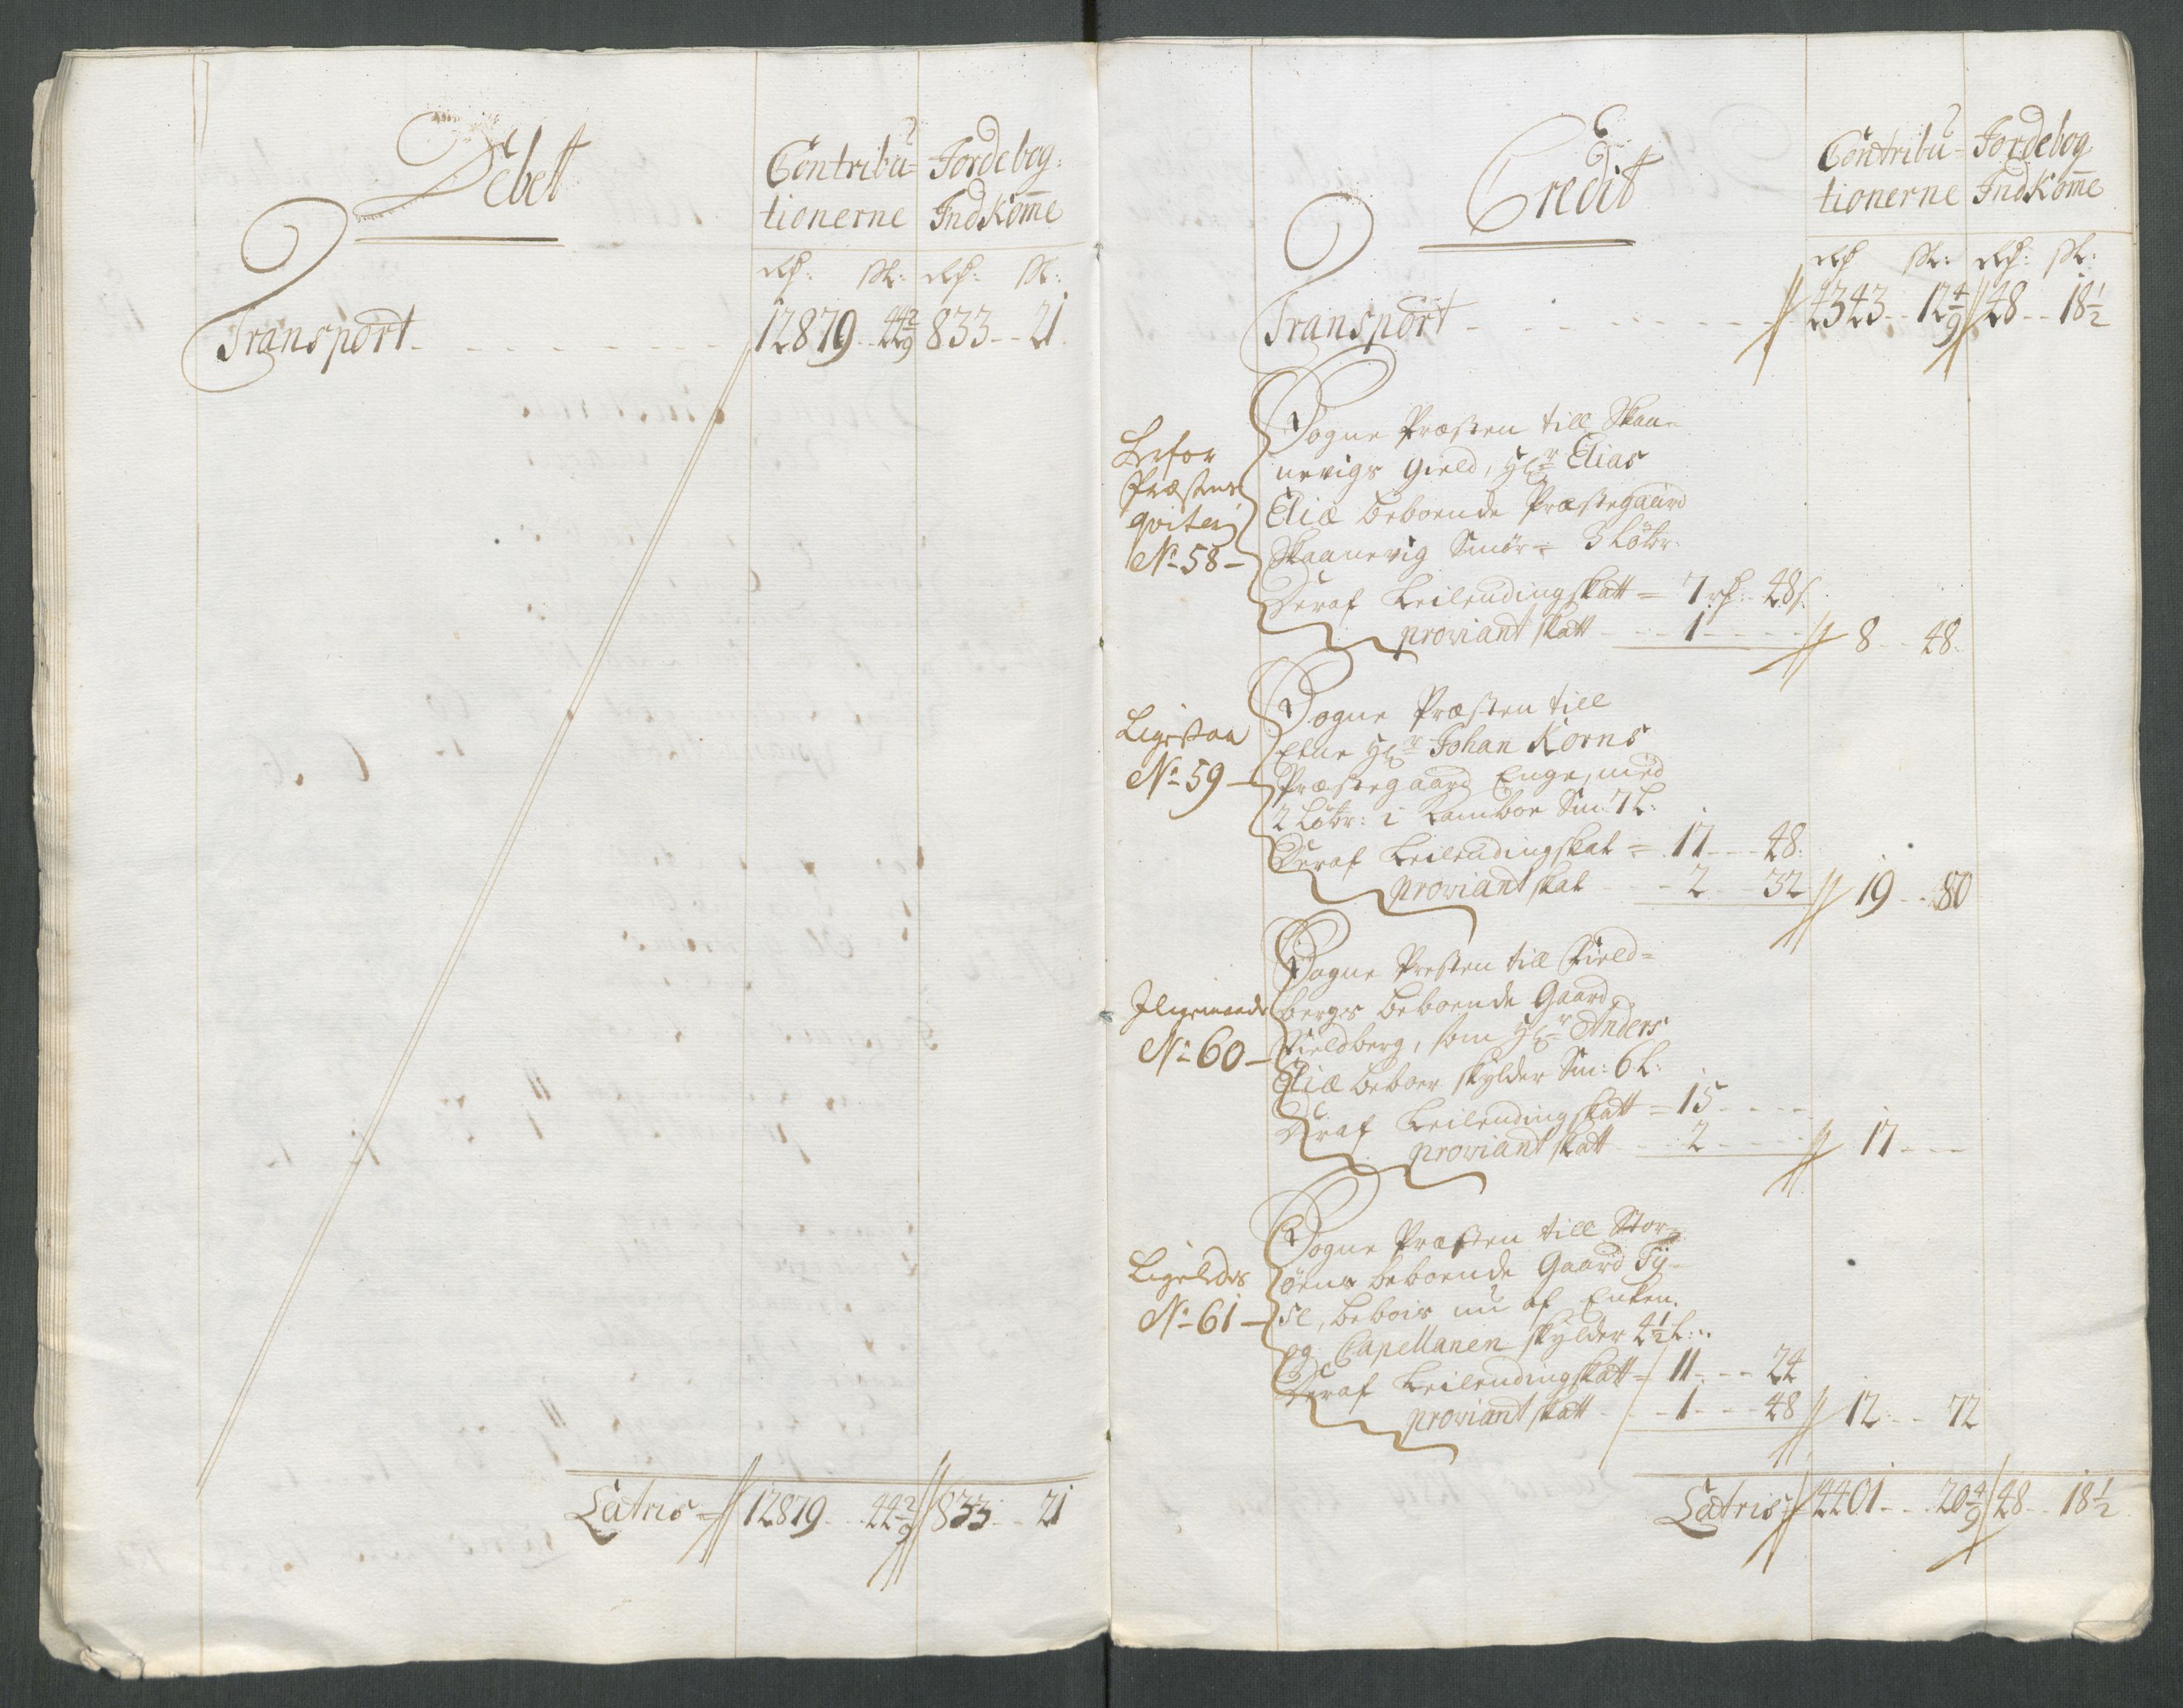 Debett
Contribu= Jordebog:
tionerne Indkom̅e
Rd: sk: Rd: sk:
Transport - - - - - - - 12879 - - 44 2/9 833 - - 21
Latris = 12879 - - 44 2/9 833 - - 21
Credit
Contribu= Jordebog
tionerne Indkom̅e
Rd sk: Rd: sk:
Transport - - - - - - - 4343 - - 12 4/9 48 - - 18 1/2
Herfor
Præstens
qviter:
No 58 -
Sogne Præsten till Skaa=
nevigs gield, Hr Elias
Eliæ beboende Præstegaard
Skaanevig Smør = 3 Løbr:
Deraf Leilendingskatt = 7 rd: 48 s:
proviant skatt - - - 1 - - - - 8 - - 48
Ligesaa
No 59 -
Sogne Præsten till
Etne Hr Johan Korns
Præstegaard Enge, med
2 Løbr: i Lamboe Sm: 7 L:
Deraf Leilendingskat = 17 - - - 48
proviant skat - - - 2 - - 32 19 - - 80
Iligemaade
No 60 -
Sogne Presten till Field=
bergs beboende Gaard
Fieldberg, som Hr Anders
Eliæ beboer skylder Sm: 6 L:
Deraf Leilendingskatt = 15 - - - -
proviant skatt - - 2 - - - - 17 - - -
Ligeledes
No 61 -
Sogne Præsten till Stor=
øens beboende Gaard Ty=
se, beboes nu af Enken
og Capellanen skylder 4 1/2 L:
Deraf Leilendingskatt = 11 - - - 24
proviant skatt - - - 1 - - - 48 12 - - 72
Latris = 4401 - - 20 4/9 48 - - 18 1/2